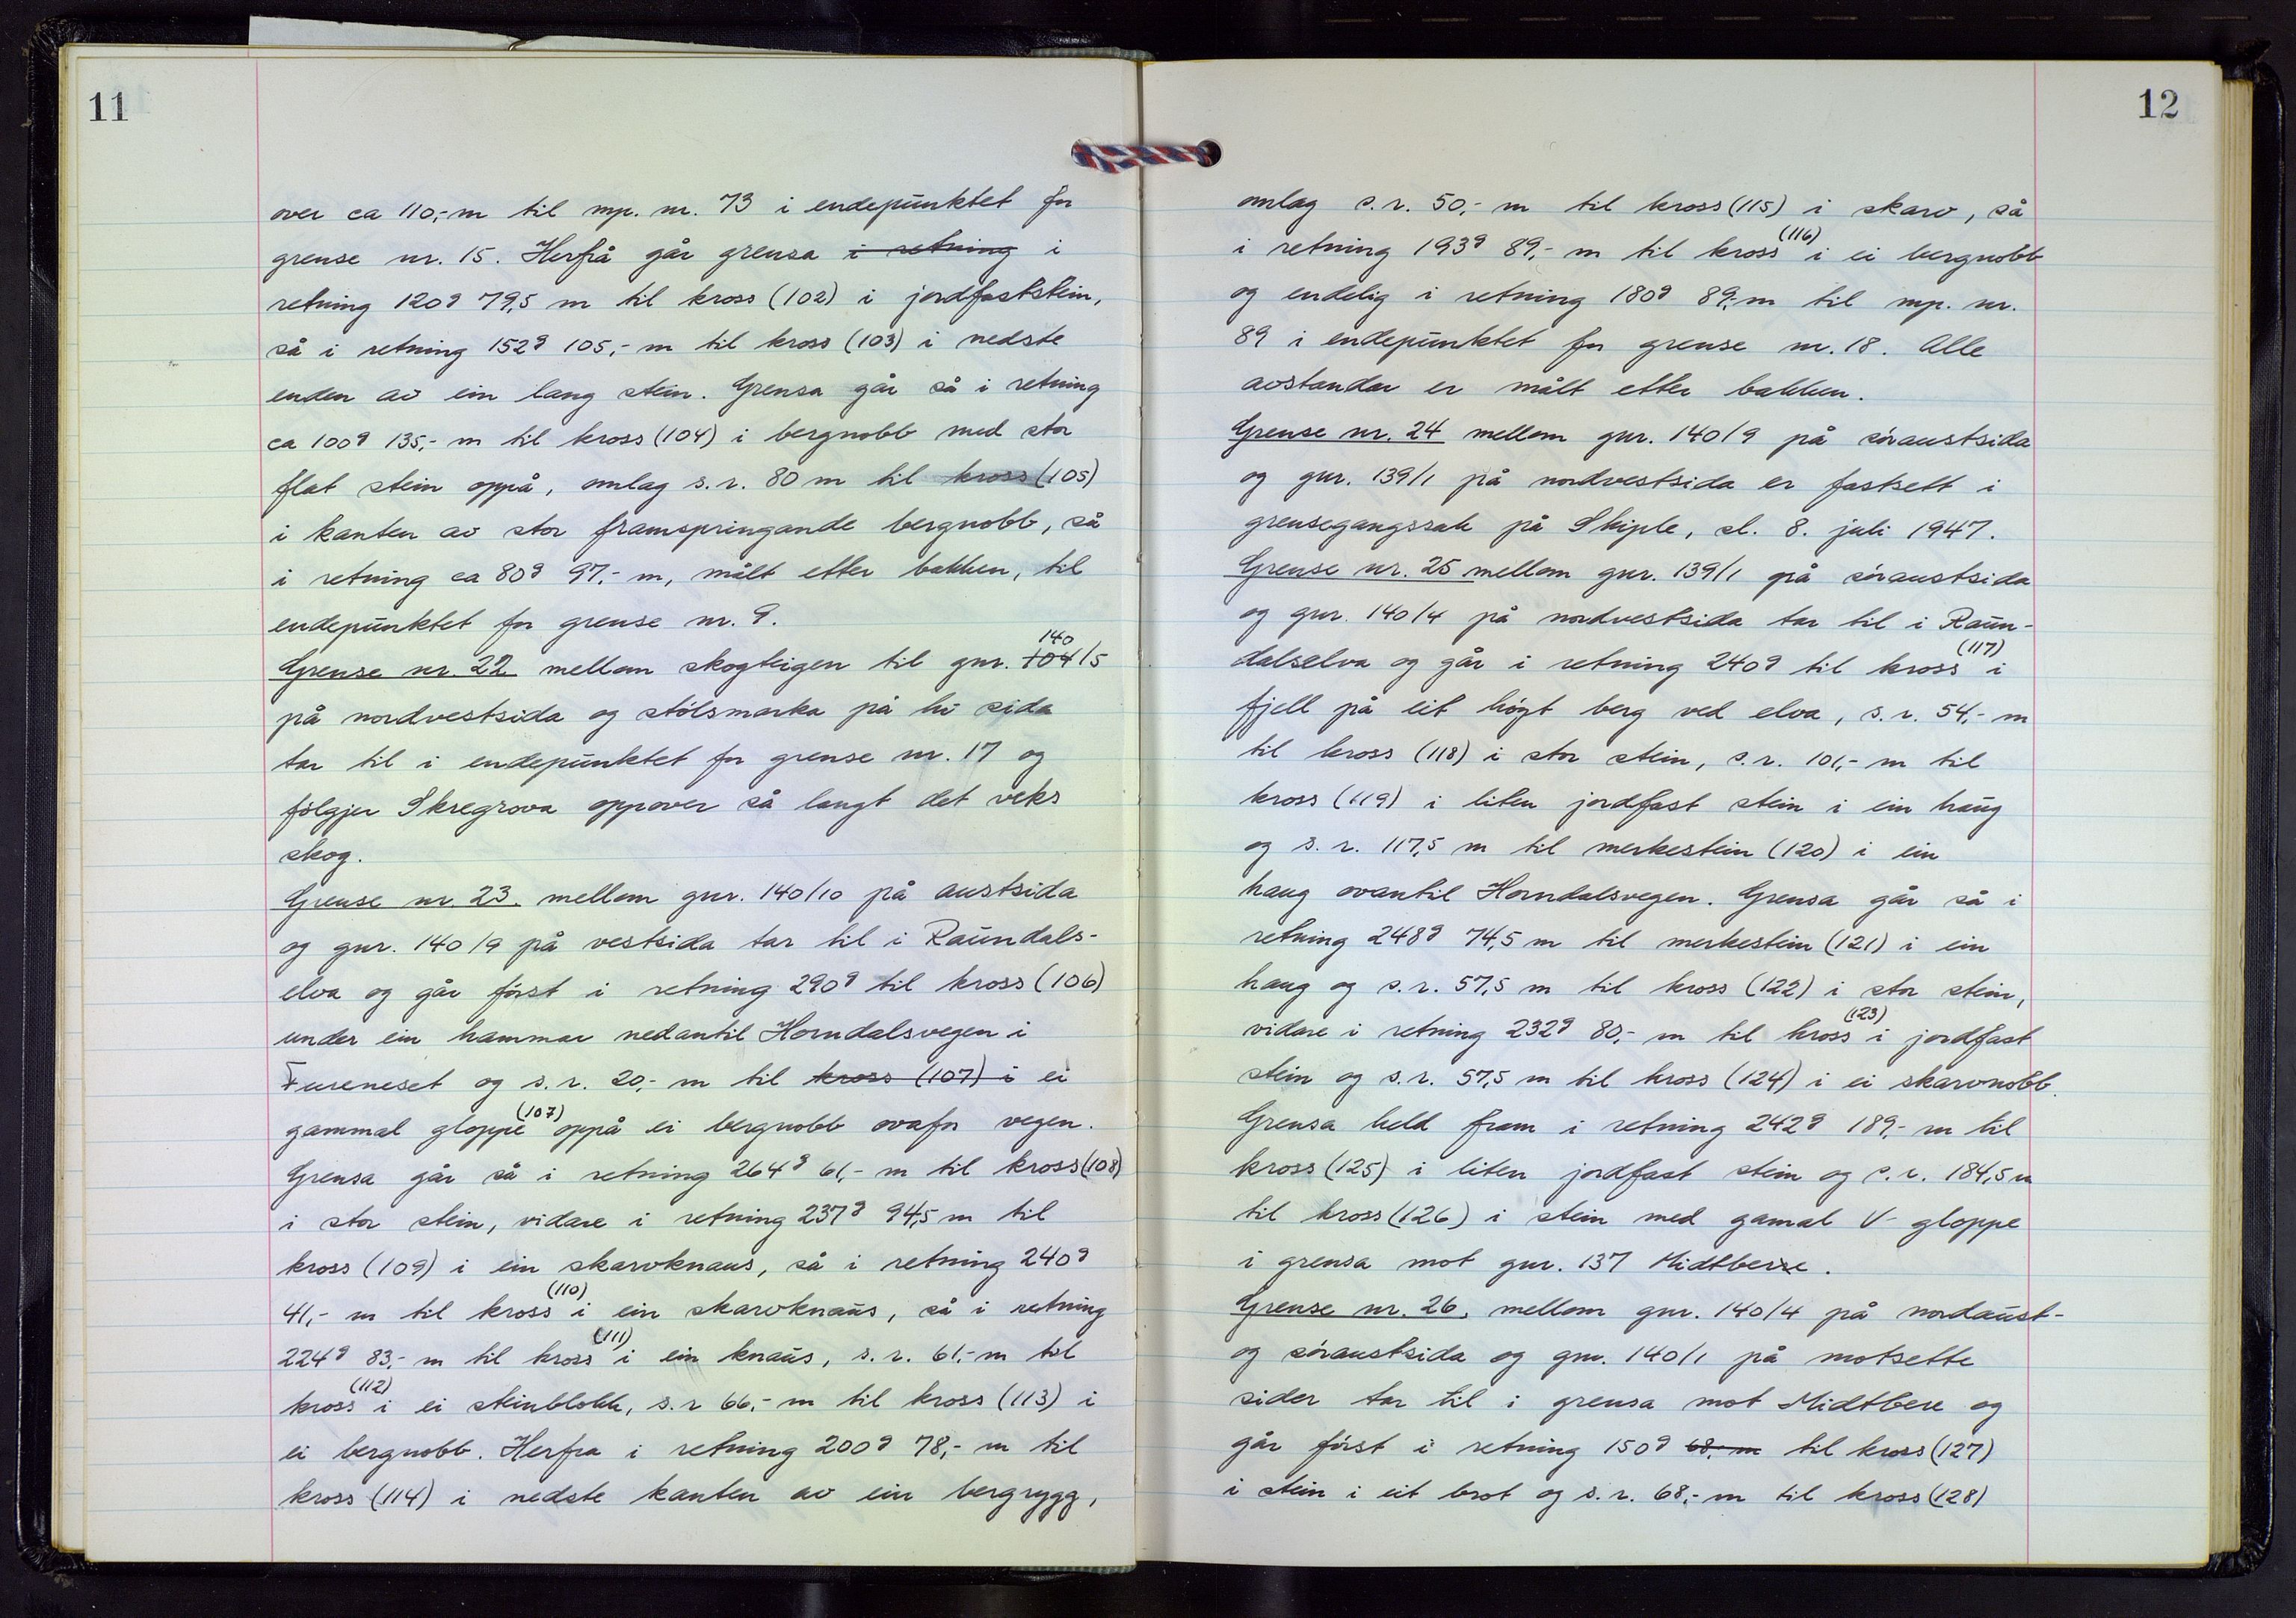 11
over ca 110,- m til mp. nr. 73 i endepunktet for
grense nr. 15. Herfrå går grensa i retning i
retning 120g 79,5 m til kross (102) i jordfaststein,
så i retning 152g 105,- m til kross (103) i nedste
enden av ein lang stein. Grensa går så i retning
ca 100g 135,- m til kross (104) i bergnobb med stor
flat stein oppå, omlag s.r. 80 m til kross (105)
i kanten av stor framspringande bergnobb, så
i retning ca 80g 97,- m, målt etter bakken, til
endepunktet for grense nr. 9.
Grense nr. 22 mellom skogteigen til gnr. 104 140/5
på nordvestsida og stølsmarka på hi sida
tar til i endepunktet for grense nr. 17 og
følgjer Skregrova oppover så langt det veks
skog.
Grense nr. 23. mellom gnr. 140/10 på austsida
og gnr. 140/9 på vestsida tar til i Raundals-
elva og går först i retning 290g til kross (106)
under ein hammar nedantil Horndalsvegen i
Fureneset og s.r. 20,- m til kross (107) i ei
gammal gloppe (107) oppå ei bergnobb ovafor vegen.
Grensa går så i retning 264g 61,- m til kross (108)
i stor stein, vidare i retning 237g 94,5 m til
kross (109) i ein skarvknaus, så i retning 240g
41,- m til kross (110) i ein skarvknaus, så i retning
224g 83,- m til kross (111) i ein knaus, s.r. 61,- m til
kross (112) i ei steinblokk, s.r 66,- m til kross (113) i
ei bergnobb. Herfra i retning 200g 78,- m til
kross (114) i nedste kanten av ein bergrygg,
12
omlag s.r. 50,- m til kross (115) i skarv, så
i retning 193g 89,- m til kross (116) i ei bergnobb
og endelig i retning 180g 89,- m til mp. nr.
89 i endepunktet for grense nr. 18. Alle
avstandar er målt etter bakken.
Grense nr. 24 mellom gnr. 140/9 på söraustsida
og gnr. 139/1 på nordvestsida er fastsett i
grensegangssak på Skiple, sl. 8. juli 1947.
Grense nr. 25 mellom gnr. 139/1 på söraustsida
og gnr. 140/4 på nordvestsida tar til i Raun-
dalselva og går i retning 240g til kross (117) i
fjell på eit högt berg ved elva, s.r. 54,- m
til kross (118) i stor stein, s.r. 101,- m til
kross (119) i liten jordfast stein i ein haug
og s.r. 117,5 m til merkestein (120) i ein
haug ovantil Horndalsvegen. Grensa går så i
retning 248g 74,5 m til merkestein (121) i ein
haug og s.r. 57,5 m til kross (122) i stor stein,
vidare i retning 232g 80,- m til kross (123) i jordfast
stein og s.r. 57,5 m til kross (124) i ei skarvnobb.
Grensa held fram i retning 242g 189,- m til
kross (125) i liten jordfast stein og s.r. 184,5 m
til kross (126) i stein med gamal V-gloppe
i grensa mot gnr. 137 Midtbere.
Grense nr. 26. mellom gnr. 140/4 på nordaust-
og söraustsida og gnr. 140/1 på motsette
sider tar til i grensa mot Midtbere og
går först i retning 150g 68,- m til kross (127)
i stein i eit brot og s.r. 68,- m til kross (128)